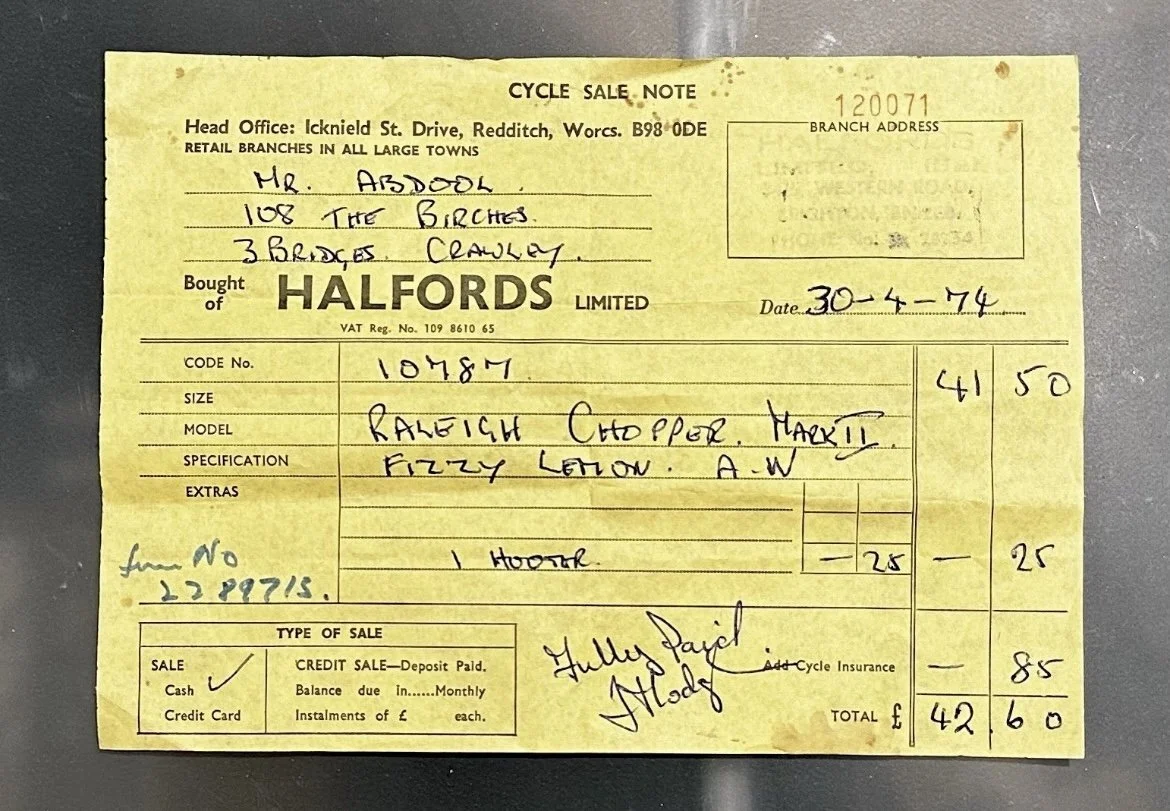 CYCLE SALE NOTE
120071
Head Office: Icknield St. Drive, Redditch, Worcs. B98 0DE
RETAIL BRANCHES IN ALL LARGE TOWNS
BRANCH ADDRESS
WESTERN ROAD
MR. ABDOOL.
108 THE BIRCHES.
3 BRIDGES. CRAWLEY.
Bought of HALFORDS LIMITED
Date 30-4-74
VAT Reg. No. 109 8610 65
CODE No. 10787 41 50
SIZE
MODEL RALEIGH CHOPPER. MARK II.
SPECIFICATION FIZZY LEMON. A-W
EXTRAS
1 HOOTER. — 25 — 25
No
2289715.
TYPE OF SALE
SALE
Cash ✓
Credit Card
CREDIT SALE—Deposit Paid.
Balance due In......Monthly
Instalments of £ each.
Fully Paid
Add Cycle Insurance — 85
TOTAL £ 42.60